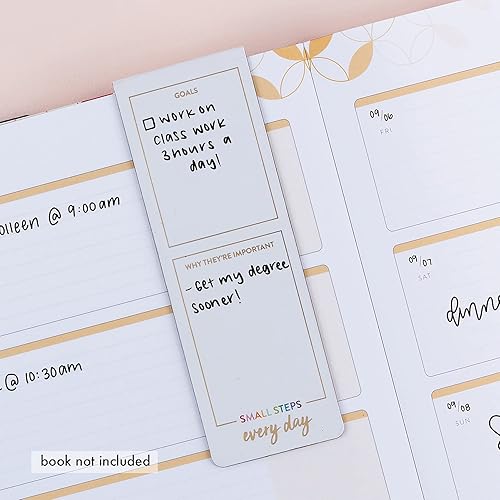 GOALS
WORK ON
CLASS WORK
3 HOURS A
DAY!
WHY THEY'RE IMPORTANT
- GET MY DEGREE
SOONER!
SMALL STEPS
every day
@ 9:00am
@ 10:30am
09/06
FRI
09/07
SAT
09/08
SUN
book not included